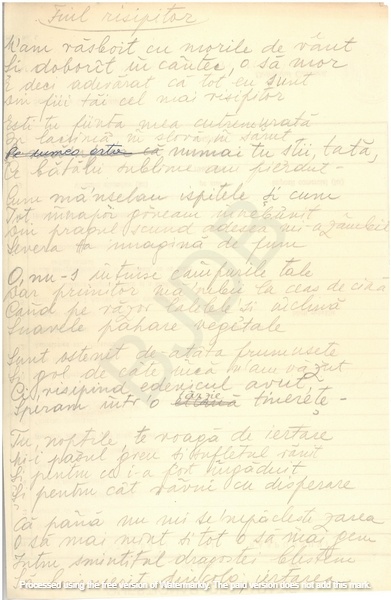 Fiul risipitor
M'am răsboit cu morile de vânt
Și doborît în cântec, o să mor
E deci adevărat că tot eu sunt
Din fiii tăi cel mai risipitor
Ești tu ființa mea cutremurată
În lacrimă, în slovă, în sărut
numai tu știi, tată,
Ce bătălii sublime am pierdut -
Cum mă'nșelau ispitele și cum
Tot înnapoi goneam
Din pragul scund adesea mi-a zâmbit
Severa ta imagină de fum
O, nu-s întinse câmpurile tale
Dar primitor mă chema la ceas de cină
Când pe răzor lalelele își închină
Suavele pahare vegetale
Sunt ostenit de atâta frumusețe
Și gol de câte încă n'am văzut
Că risipind edenicul avut,
Speram într'o tinerețe -
Tu, nopțile te roagă de iertare
Mi-i pasul greu și sufletul rănit
Și pentru ce i-a fost îngăduit
Și pentru cât râvni cu disperare
Că până nu mi se'mpăclește zarea
O să mai mint și tot o să mai gem
Între smintitul dragostei blestem
BJDB
Processed using the free version of Watermarkly. The paid version does not add this mark.